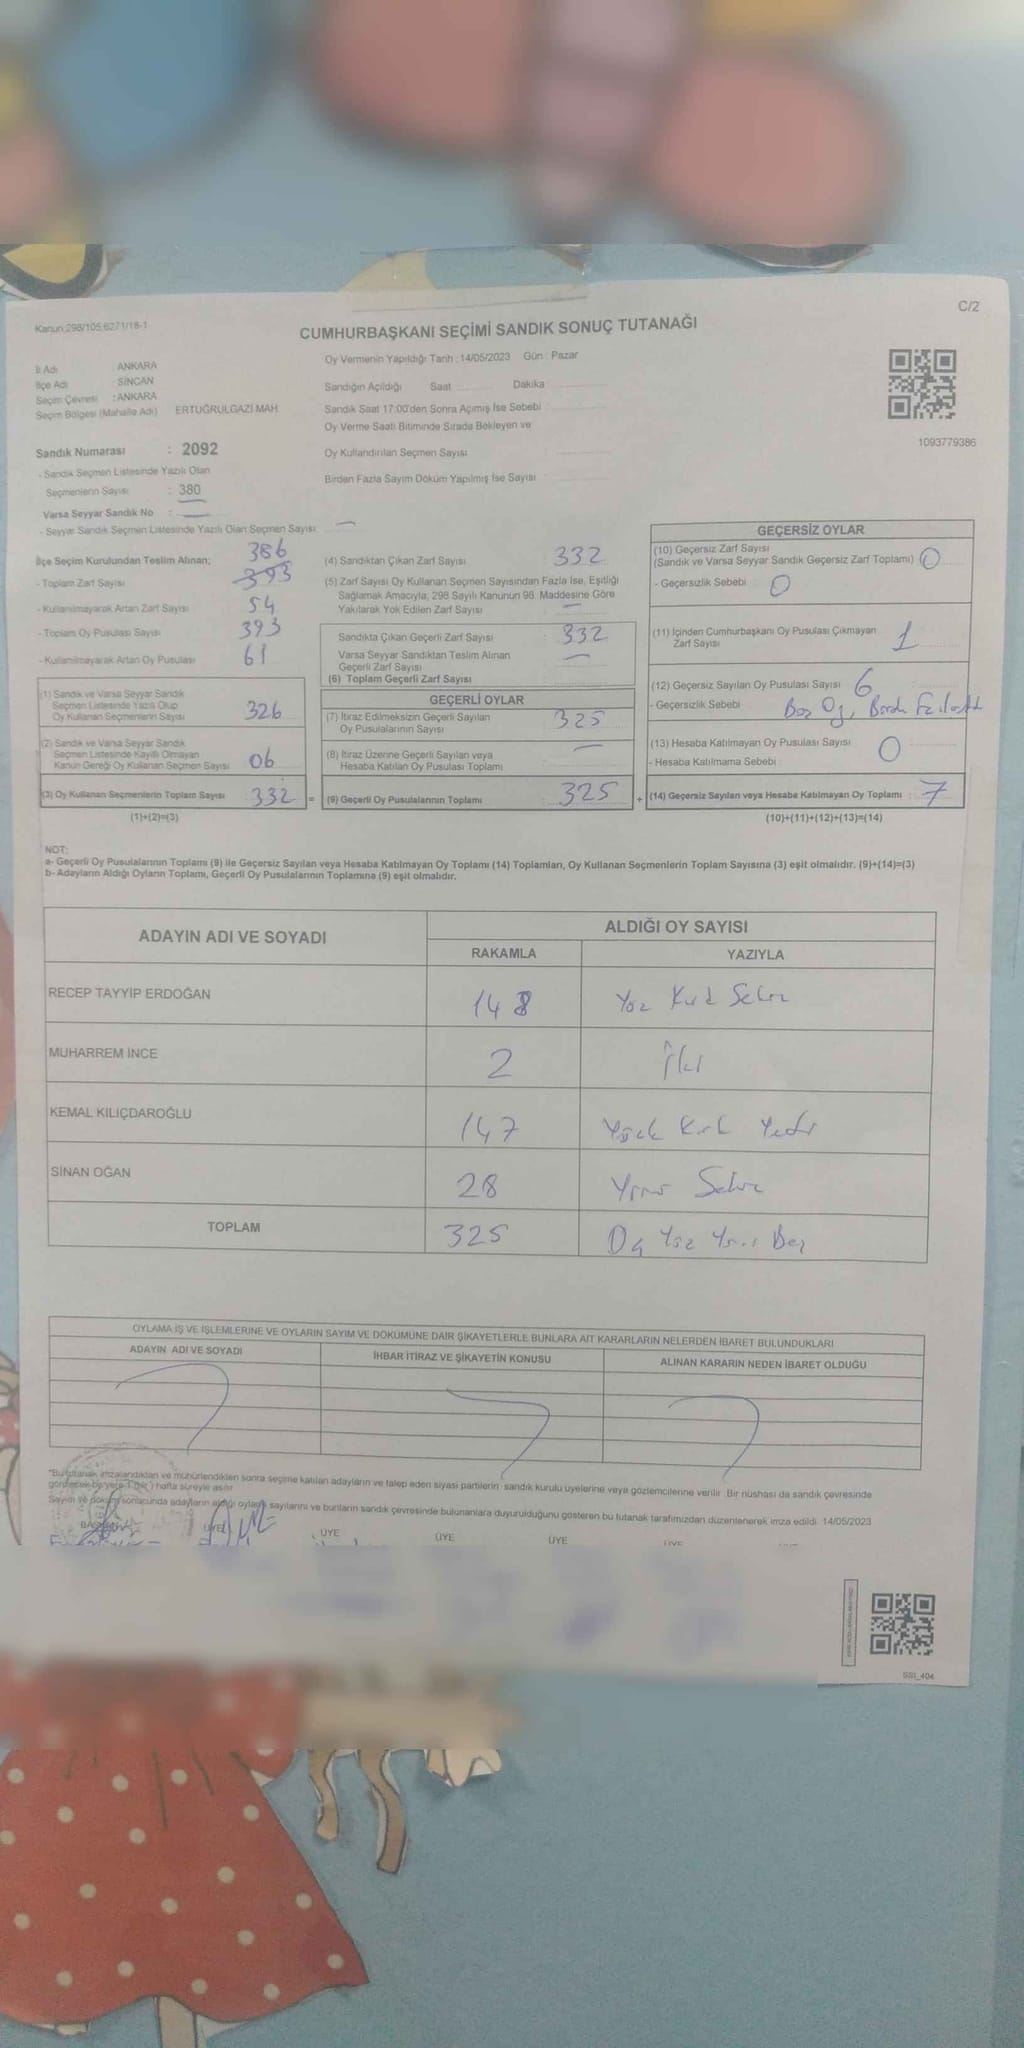 C/2
Kanun:298/105.6271/18-1
CUMHURBAŞKANI SEÇİMİ SANDIK SONUÇ TUTANAĞI
İl Adı : ANKARA
İlçe Adı : SİNCAN
Seçim Çevresi : ANKARA
Seçim Bölgesi (Mahalle Adı) ERTUĞRULGAZİ MAH
Sandık Numarası : 2092
- Sandık Seçmen Listesinde Yazılı Olan
Seçmenlerin Sayısı : 380
Varsa Seyyar Sandık No : —
- Seyyar Sandık Seçmen Listesinde Yazılı Olan Seçmen Sayısı: —
Oy Vermenin Yapıldığı Tarih : 14/05/2023 Gün : Pazar
Sandığın Açıldığı Saat Dakika
Sandık Saat 17.00'den Sonra Açılmış İse Sebebi
Oy Verme Saati Bitiminde Sırada Bekleyen ve
Oy Kullandırılan Seçmen Sayısı
Birden Fazla Sayım Döküm Yapılmış İse Sayısı
1093779386
İlçe Seçim Kurulundan Teslim Alınan; 386
- Toplam Zarf Sayısı 393
- Kullanılmayarak Artan Zarf Sayısı 54
- Toplam Oy Pusulası Sayısı 393
- Kullanılmayarak Artan Oy Pusulası 61
(1) Sandık ve Varsa Seyyar Sandık
Seçmen Listesinde Yazılı Olup
Oy Kullanan Seçmenlerin Sayısı 326
(2) Sandık ve Varsa Seyyar Sandık
Seçmen Listesinde Kayıtlı Olmayan
Kanun Gereği Oy Kullanan Seçmen Sayısı 06
(3) Oy Kullanan Seçmenlerin Toplam Sayısı 332 =
(1)+(2)=(3)
(4) Sandıktan Çıkan Zarf Sayısı 332
(5) Zarf Sayısı Oy Kullanan Seçmen Sayısından Fazla İse, Eşitliği
Sağlamak Amacıyla, 298 Sayılı Kanunun 98. Maddesine Göre
Yakılarak Yok Edilen Zarf Sayısı —
Sandıkta Çıkan Geçerli Zarf Sayısı 332
Varsa Seyyar Sandıktan Teslim Alınan
Geçerli Zarf Sayısı —
(6) Toplam Geçerli Zarf Sayısı
GEÇERLİ OYLAR
(7) İtiraz Edilmeksizin Geçerli Sayılan
Oy Pusulalarının Sayısı 325
(8) İtiraz Üzerine Geçerli Sayılan veya
Hesaba Katılan Oy Pusulası Toplamı —
(9) Geçerli Oy Pusulalarının Toplamı 325 +
GEÇERSİZ OYLAR
(10) Geçersiz Zarf Sayısı
(Sandık ve Varsa Seyyar Sandık Geçersiz Zarf Toplamı) 0
- Geçersizlik Sebebi : 0
(11) İçinden Cumhurbaşkanı Oy Pusulası Çıkmayan
Zarf Sayısı 1
(12) Geçersiz Sayılan Oy Pusulası Sayısı 6
- Geçersizlik Sebebi Boş Oy,
(13) Hesaba Katılmayan Oy Pusulası Sayısı 0
- Hesaba Katılmama Sebebi :
(14) Geçersiz Sayılan veya Hesaba Katılmayan Oy Toplamı : 7
(10)+(11)+(12)+(13)=(14)
NOT:
a- Geçerli Oy Pusulalarının Toplamı (9) ile Geçersiz Sayılan veya Hesaba Katılmayan Oy Toplamı (14) Toplamları, Oy Kullanan Seçmenlerin Toplam Sayısına (3) eşit olmalıdır. (9)+(14)=(3)
b- Adayların Aldığı Oyların Toplamı, Geçerli Oy Pusulalarının Toplamına (9) eşit olmalıdır.
ADAYIN ADI VE SOYADI ALDIĞI OY SAYISI
RAKAMLA YAZIYLA
RECEP TAYYİP ERDOĞAN 148 Yüz Kırk Sekiz
MUHARREM İNCE 2 İki
KEMAL KILIÇDAROĞLU 147 Kırk Yedi
SİNAN OĞAN 28 Yirmi Sekiz
TOPLAM 325 Üç Yüz Yirmi Beş
OYLAMA İŞ VE İŞLEMLERİNE VE OYLARIN SAYIM VE DÖKÜMÜNE DAİR ŞİKAYETLERLE BUNLARA AİT KARARLARIN NELERDEN İBARET BULUNDUKLARI
ADAYIN ADI VE SOYADI İHBAR İTİRAZ VE ŞİKAYETİN KONUSU ALINAN KARARIN NEDEN İBARET OLDUĞU
"Bu tutanak imzalandıktan ve mühürlendikten sonra seçime katılan adayların ve talep eden siyasi partilerin sandık kurulu üyelerine veya gözlemcilerine verilir. Bir nüshası da sandık çevresinde
görülecek bir yere 1 (bir) hafta süreyle asılır
Sayım ve döküm sonucunda adayların aldığı oyların sayılarını ve bunların sandık çevresinde bulunanlara duyurulduğunu gösteren bu tutanak tarafımızdan düzenlenerek imza edildi. 14/05/2023
BAŞKAN ÜYE ÜYE ÜYE ÜYE ÜYE
SSI_404